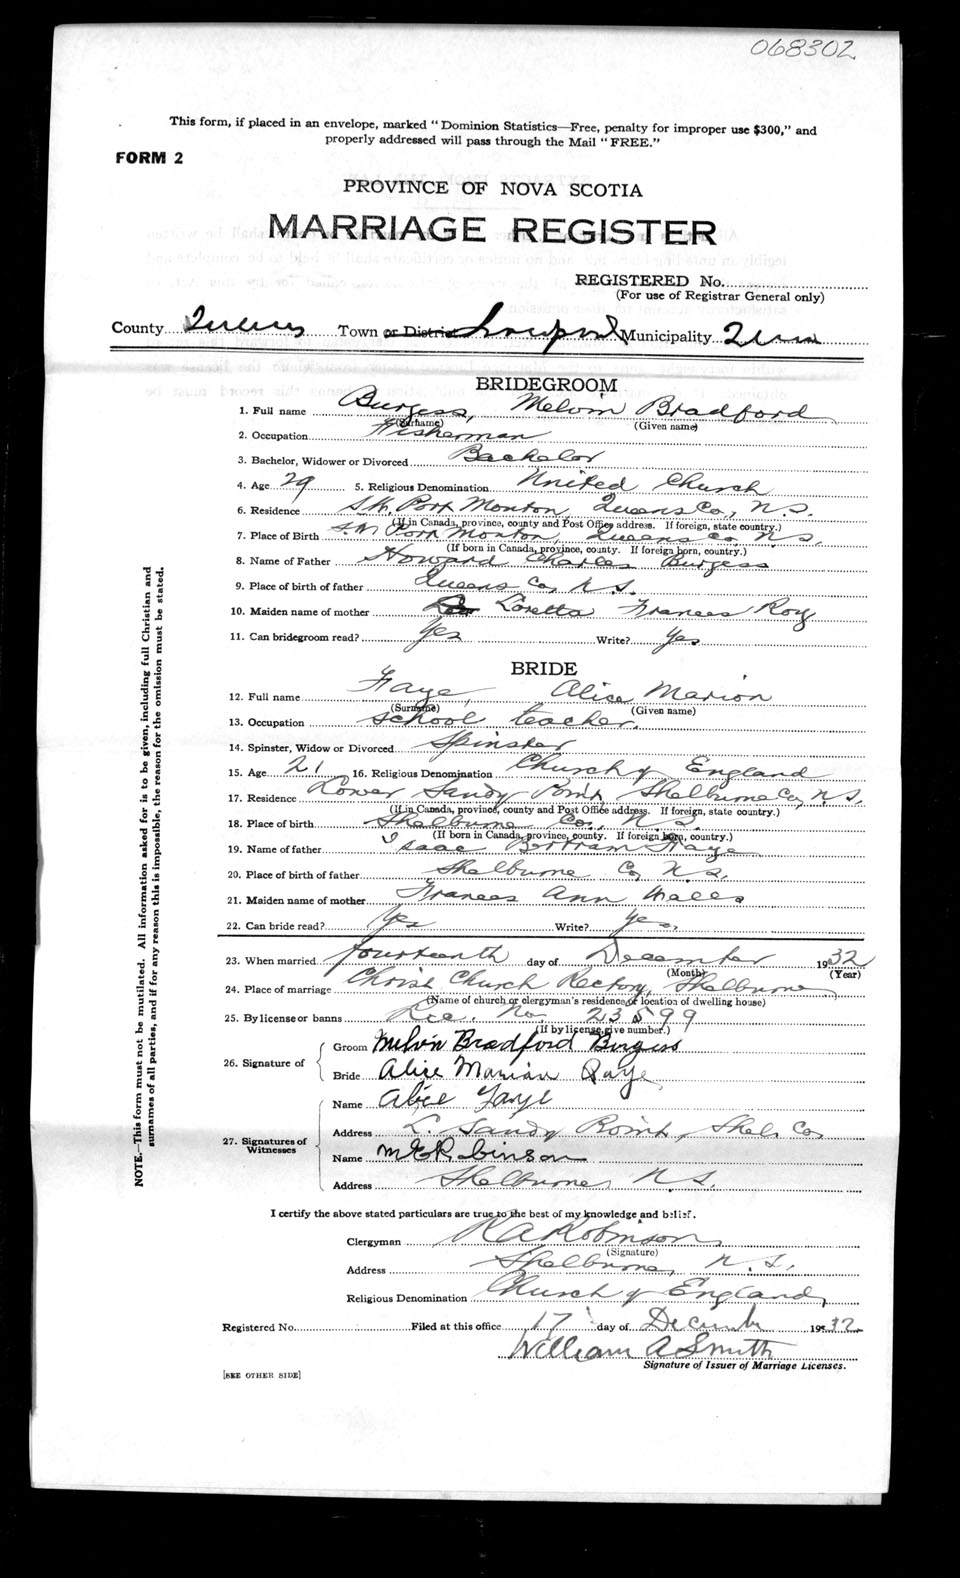 068302
This form, if placed in an envelope, marked "Dominion Statistics—Free, penalty for improper use $300," and
properly addressed will pass through the Mail "FREE."
FORM 2
PROVINCE OF NOVA SCOTIA
MARRIAGE REGISTER
REGISTERED No.
(For use of Registrar General only)
County Queens Town or District Liverpool Municipality Queens
BRIDEGROOM
1. Full name Burgess, Melvin Bradford
(Surname) (Given name)
2. Occupation Fisherman
3. Bachelor, Widower or Divorced Bachelor
4. Age 29 5. Religious Denomination United Church
6. Residence S.W. Port Mouton, Queens Co., N.S.
(If in Canada, province, county and Post Office address. If foreign, state country.)
7. Place of Birth S.W. Port Mouton, Queens Co. N.S.
(If born in Canada, province, county. If foreign born, country.)
8. Name of Father Howard Charles Burgess
9. Place of birth of father Queens Co, N.S.
10. Maiden name of mother Loretta Frances Roy
11. Can bridegroom read? Yes Write? Yes
BRIDE
12. Full name Faye, Alice Marion
(Surname) (Given name)
13. Occupation school teacher.
14. Spinster, Widow or Divorced Spinster
15. Age 21 16. Religious Denomination Church of England
17. Residence Lower Sandy Point, Shelburne Co, N.S.
(If in Canada, province, county and Post Office address. If foreign, state country.)
18. Place of birth Shelburne Co., N.S.
(If born in Canada, province, county. If foreign born, country.)
19. Name of father Isaac Bertram Faye
20. Place of birth of father Shelburne Co, N.S.
21. Maiden name of mother Frances Ann
22. Can bride read? Yes Write? Yes.
23. When married fourteenth day of December 1932
(Month) (Year)
24. Place of marriage Christ Church Rectory, Shelburne
(Name of church or clergyman's residence or location of dwelling house)
25. By license or banns Lic. No. 23599
(If by license, give number.)
26. Signature of
Groom Melvin Bradford Burgess
Bride Alice Marion Faye
27. Signatures of Witnesses
Name Alice Faye
Address L. Sandy Point, Shel. Co,
Name M E Robinson
Address Shelburne, N.S.
I certify the above stated particulars are true to the best of my knowledge and belief.
Clergyman Robinson
(Signature)
Address Shelburne, N.S.
Religious Denomination Church of England,
Registered No. Filed at this office 17 day of December 1932
William A Smith
Signature of Issuer of Marriage Licenses.
[SEE OTHER SIDE]
NOTE.—This form must not be mutilated. All information asked for is to be given, including full Christian and
surnames of all parties, and if for any reason this is impossible, the reason for the omission must be stated.